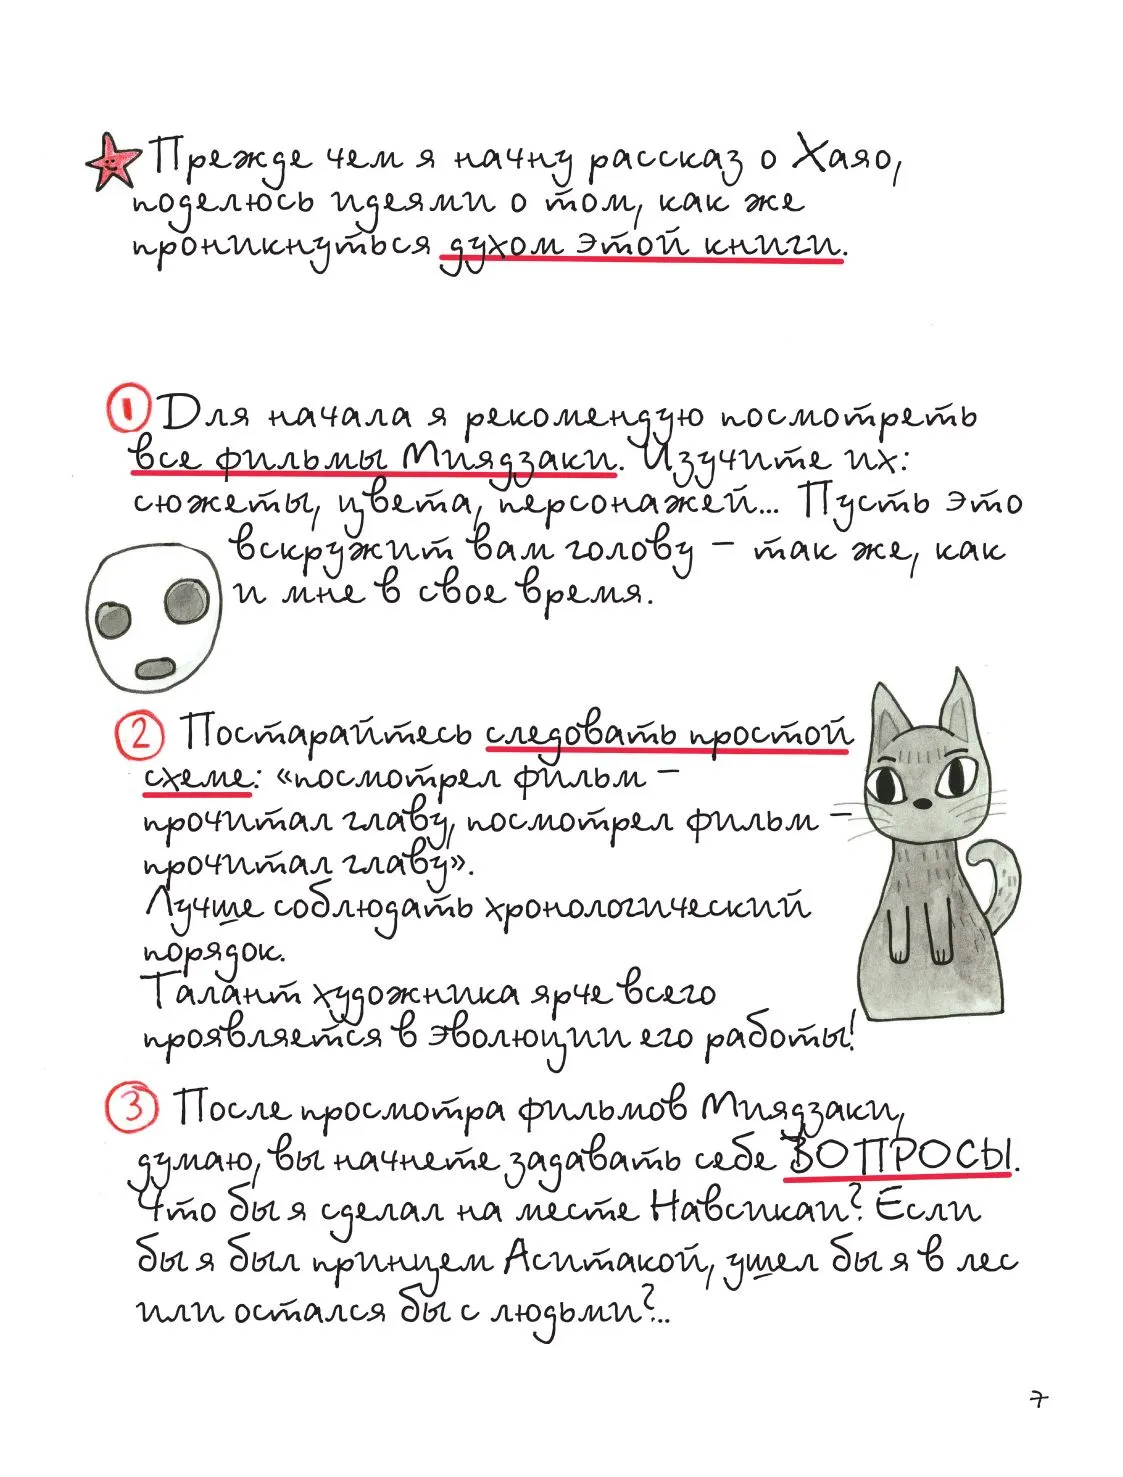 Прежде чем я начну рассказ о Хаяо,
поделюсь идеями о том, как же
проникнуться духом этой книги.
1 Для начала я рекомендую посмотреть
все фильмы Миядзаки. Изучите их:
сюжеты, цвета, персонажей... Пусть это
вскружит вам голову – так же, как
и мне в свое время.
2 Постарайтесь следовать простой
схеме: «посмотрел фильм –
прочитал главу, посмотрел фильм –
прочитал главу».
Лучше соблюдать хронологический
порядок.
Талант художника ярче всего
проявляется в эволюции его работы!
3 После просмотра фильмов Миядзаки,
думаю, вы начнете задавать себе ВОПРОСЫ.
Что бы я сделал на месте Навсикаи? Если
бы я был принцем Аситакой, ушел бы я в лес
или остался бы с людьми?..
7